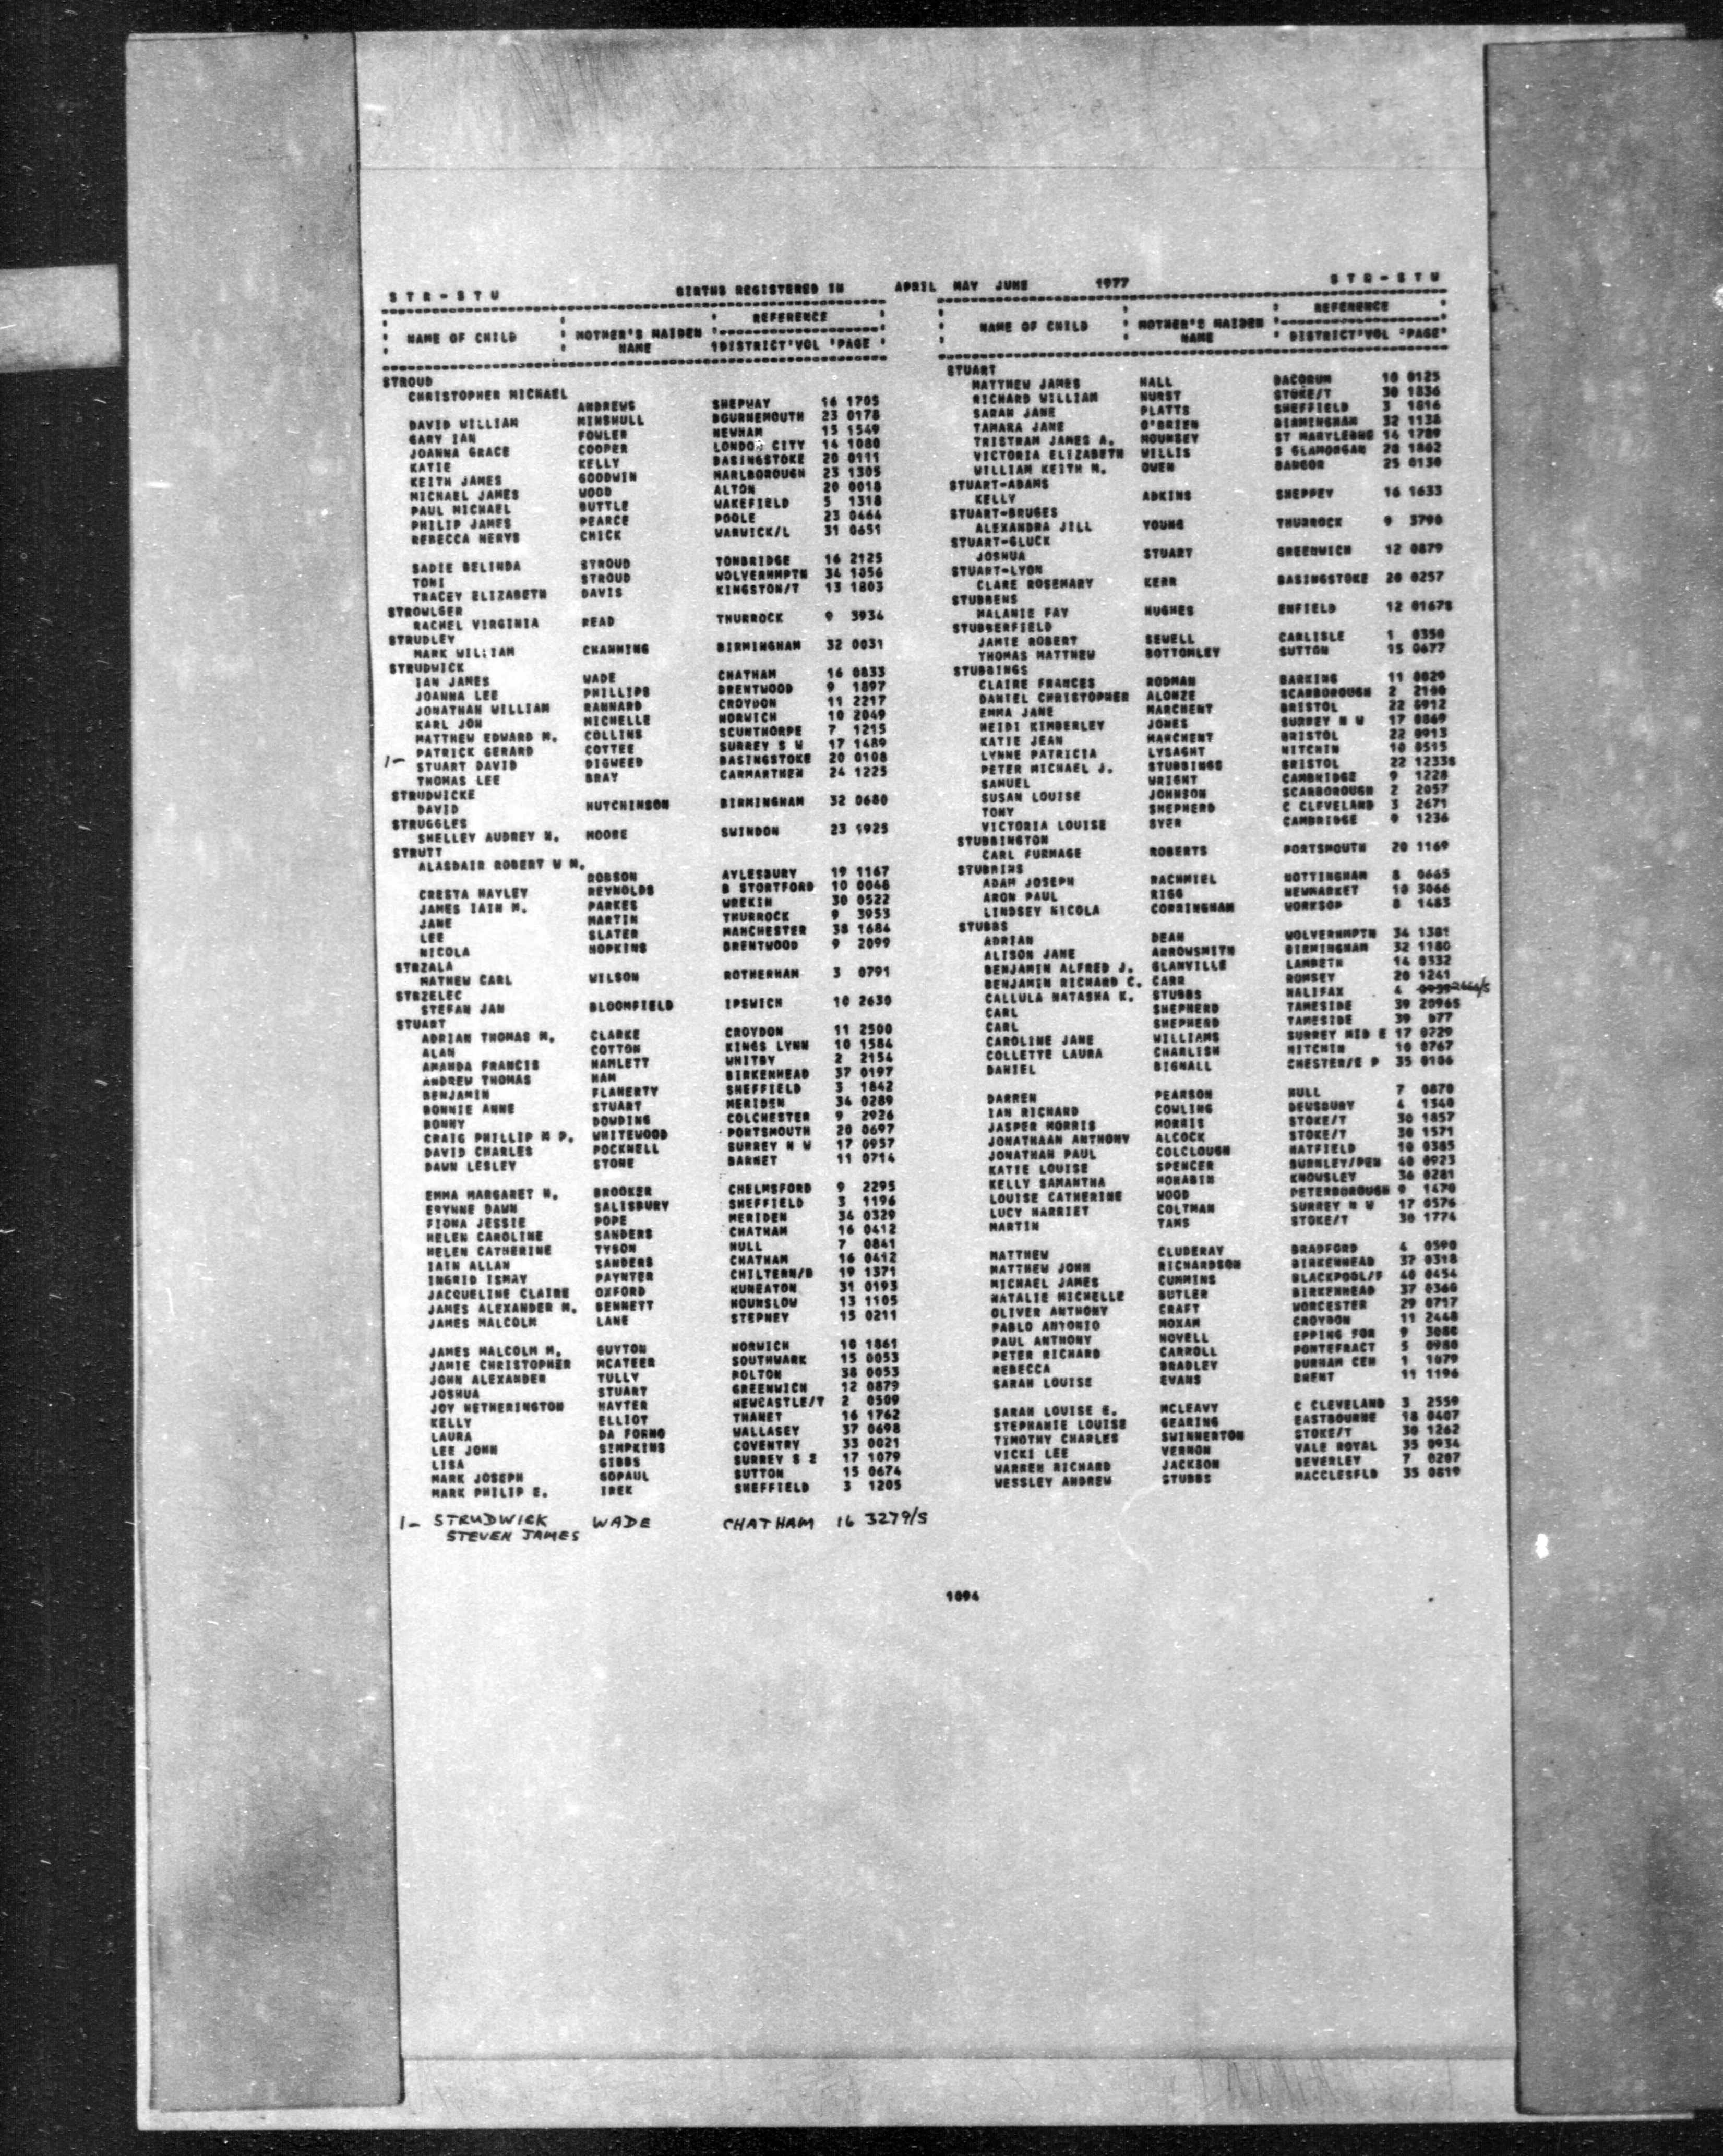 STR-STU BIRTHS REGISTERED IN APRIL MAY JUNE 1977 STR-STU
NAME OF CHILD MOTHER'S MAIDEN NAME REFERENCE DISTRICT VOL PAGE
STROUD
CHRISTOPHER MICHAEL
ANDREWS SHEPWAY 16 1705
DAVID WILLIAM MINSHULL BOURNEMOUTH 23 0178
GARY IAN FOWLER NEWHAM 15 1549
JOANNA GRACE COOPER LONDON CITY 14 1080
KATIE KELLY BASINGSTOKE 20 0111
KEITH JAMES GOODWIN MARLBOROUGH 23 1305
MICHAEL JAMES WOOD ALTON 20 0018
PAUL MICHAEL BUTTLE WAKEFIELD 5 1318
PHILIP JAMES PEARCE POOLE 23 0464
REBECCA NERYS CHICK WARWICK/L 31 0651
SADIE BELINDA STROUD TONBRIDGE 16 2125
TONI STROUD WOLVERHMPTN 34 1056
TRACEY ELIZABETH DAVIS KINGSTON/T 13 1803
STROWLGER
RACHEL VIRGINIA READ THURROCK 9 3934
STRUDLEY
MARK WILLIAM CHANNING BIRMINGHAM 32 0031
STRUDWICK
IAN JAMES WADE CHATHAM 16 0833
JOANNA LEE PHILLIPS BRENTWOOD 9 1897
JONATHAN WILLIAM RANNARD CROYDON 11 2217
KARL JON MICHELLE NORWICH 10 2049
MATTHEW EDWARD M. COLLINS SCUNTHORPE 7 1215
PATRICK GERARD COTTEE SURREY S W 17 1489
1- STUART DAVID DIGWEED BASINGSTOKE 20 0108
THOMAS LEE BRAY CARMARTHEN 24 1225
STRUDWICKE
DAVID HUTCHINSON BIRMINGHAM 32 0680
STRUGGLES
SHELLEY AUDREY N. MOORE SWINDON 23 1925
STRUTT
ALASDAIR ROBERT W M.
ROBSON AYLESBURY 19 1167
CRESTA HAYLEY REYNOLDS B STORTFORD 10 0048
JAMES IAIN M. PARKES WREKIN 30 0522
JANE MARTIN THURROCK 9 3953
LEE SLATER MANCHESTER 38 1684
NICOLA HOPKINS BRENTWOOD 9 2099
STRZALA
MATHEW CARL WILSON ROTHERHAM 3 0791
STRZELEC
STEFAN JAN BLOOMFIELD IPSWICH 10 2630
STUART
ADRIAN THOMAS M. CLARKE CROYDON 11 2500
ALAN COTTON KINGS LYNN 10 1584
AMANDA FRANCIS HAMLETT WHITBY 2 2154
ANDREW THOMAS HAM BIRKENHEAD 37 0197
BENJAMIN FLAHERTY SHEFFIELD 3 1842
BONNIE ANNE STUART MERIDEN 34 0289
BONNY DOWDING COLCHESTER 9 2926
CRAIG PHILLIP M P. WHITEWOOD PORTSMOUTH 20 0697
DAVID CHARLES POCKNELL SURREY N W 17 0957
DAWN LESLEY STONE BARNET 11 0714
EMMA MARGARET H. BROOKER CHELMSFORD 9 2295
ERYNNE DAWN SALISBURY SHEFFIELD 3 1196
FIONA JESSIE POPE MERIDEN 34 0329
HELEN CAROLINE SANDERS CHATHAM 16 0412
HELEN CATHERINE TYSON HULL 7 0841
IAIN ALLAN SANDERS CHATHAM 16 0412
INGRID ISMAY PAYNTER CHILTERN/B 19 1371
JACQUELINE CLAIRE OXFORD NUNEATON 31 0193
JAMES ALEXANDER M. BENNETT HOUNSLOW 13 1105
JAMES MALCOLM LANE STEPNEY 15 0211
JAMES MALCOLM M. GUYTON NORWICH 10 1861
JAMIE CHRISTOPHER MCATEER SOUTHWARK 15 0053
JOHN ALEXANDER TULLY BOLTON 38 0053
JOSHUA STUART GREENWICH 12 0879
JOY HETHERINGTON HAYTER NEWCASTLE/T 2 0509
KELLY ELLIOT THANET 16 1762
LAURA DA FORNO WALLASEY 37 0698
LEE JOHN SIMPKINS COVENTRY 33 0021
LISA GIBBS SURREY S E 17 1079
MARK JOSEPH GOPAUL SUTTON 15 0674
MARK PHILIP E. IREK SHEFFIELD 3 1205
1- STRUDWICK WADE CHATHAM 16 3279/S
STEVEN JAMES
NAME OF CHILD MOTHER'S MAIDEN NAME REFERENCE DISTRICT VOL PAGE
STUART
MATTHEW JAMES HALL DACORUM 10 0125
RICHARD WILLIAM HURST STOKE/T 30 1836
SARAH JANE PLATTS SHEFFIELD 3 1816
TAMARA JANE O'BRIEN BIRMINGHAM 32 1138
TRISTRAM JAMES A. MOUNSEY ST MARYLEBNE 14 1789
VICTORIA ELIZABETH WILLIS S GLAMORGAN 28 1802
WILLIAM KEITH M. OWEN BANGOR 25 0130
STUART-ADAMS
KELLY ADKINS SHEPPEY 16 1633
STUART-BRUGES
ALEXANDRA JILL YOUNG THURROCK 9 3790
STUART-GLUCK
JOSHUA STUART GREENWICH 12 0879
STUART-LYON
CLARE ROSEMARY KERR BASINGSTOKE 20 0257
STUBBENS
MALANIE FAY HUGHES ENFIELD 12 0167S
STUBBERFIELD
JAMIE ROBERT SEWELL CARLISLE 1 0350
THOMAS MATTHEW BOTTOMLEY SUTTON 15 0677
STUBBINGS
CLAIRE FRANCES RODMAN BARKING 11 0029
DANIEL CHRISTOPHER ALONZE SCARBOROUGH 2 2100
EMMA JANE MARCHENT BRISTOL 22 0912
HEIDI KIMBERLEY JONES SURREY N W 17 0869
KATIE JEAN MARCHENT BRISTOL 22 0913
LYNNE PATRICIA LYSAGHT HITCHIN 10 0515
PETER MICHAEL J. STUBBINGS BRISTOL 22 1233S
SAMUEL WRIGHT CAMBRIDGE 9 1228
SUSAN LOUISE JOHNSON SCARBOROUGH 2 2057
TONY SHEPHERD C CLEVELAND 3 2671
VICTORIA LOUISE SYER CAMBRIDGE 9 1236
STUBBINGTON
CARL FURMAGE ROBERTS PORTSMOUTH 20 1169
STUBBINS
ADAM JOSEPH RACHMIEL NOTTINGHAM 8 0665
ARON PAUL RIGG NEWMARKET 10 3066
LINDSEY NICOLA CORRINGHAM WORKSOP 8 1483
STUBBS
ADRIAN DEAN WOLVERHMPTN 34 1381
ALISON JANE ARROWSMITH BIRMINGHAM 32 1180
BENJAMIN ALFRED J. GLANVILLE LAMBETH 14 0332
BENJAMIN RICHARD C. CARR ROMSEY 20 1241
CALLULA NATASHA K. STUBBS HALIFAX 4
CARL SHEPHERD TAMESIDE 39 2096S
CARL SHEPHERD TAMESIDE 39
CAROLINE JANE WILLIAMS SURREY MID E 17 0229
COLLETTE LAURA CHARLISH HITCHIN 10 0767
DANIEL BIGNALL CHESTER/E P 35 0106
DARREN PEARSON HULL 7 0870
IAN RICHARD COWLING DEWSBURY 4 1340
JASPER MORRIS MORRIS STOKE/T 30 1857
JONATHAAN ANTHONY ALCOCK STOKE/T 30 1571
JONATHAN PAUL COLCLOUGH HATFIELD 10 0385
KATIE LOUISE SPENCER BURNLEY/PEN 40 0923
KELLY SAMANTHA MORABIN KNOWSLEY 36 0281
LOUISE CATHERINE WOOD PETERBOROUGH 9 1470
LUCY HARRIET COLTMAN SURREY N W 17 0576
MARTIN TAMS STOKE/T 30 1774
MATTHEW CLUDERAY BRADFORD 4 0590
MATTHEW JOHN RICHARDSON BIRKENHEAD 37 0318
MICHAEL JAMES CUMMINS BLACKPOOL/F 40 0454
NATALIE MICHELLE BUTLER BIRKENHEAD 37 0360
OLIVER ANTHONY CRAFT WORCESTER 29 0717
PABLO ANTONIO MOXAM CROYDON 11 2448
PAUL ANTHONY HOVELL EPPING FOR 9
PETER RICHARD CARROLL PONTEFRACT 5 0980
REBECCA BRADLEY DURHAM CEN 1 1079
SARAH LOUISE EVANS BRENT 11 1196
SARAH LOUISE E. MCLEAVY C CLEVELAND 3 2559
STEPHANIE LOUISE GEARING EASTBOURNE 18 0407
TIMOTHY CHARLES SWINNERTON STOKE/T 30 1262
VICKI LEE VERNON VALE ROYAL 35 0934
WARREN RICHARD JACKSON BEVERLEY 7 0207
WESSLEY ANDREW STUBBS MACCLESFLD 35 0819
1094